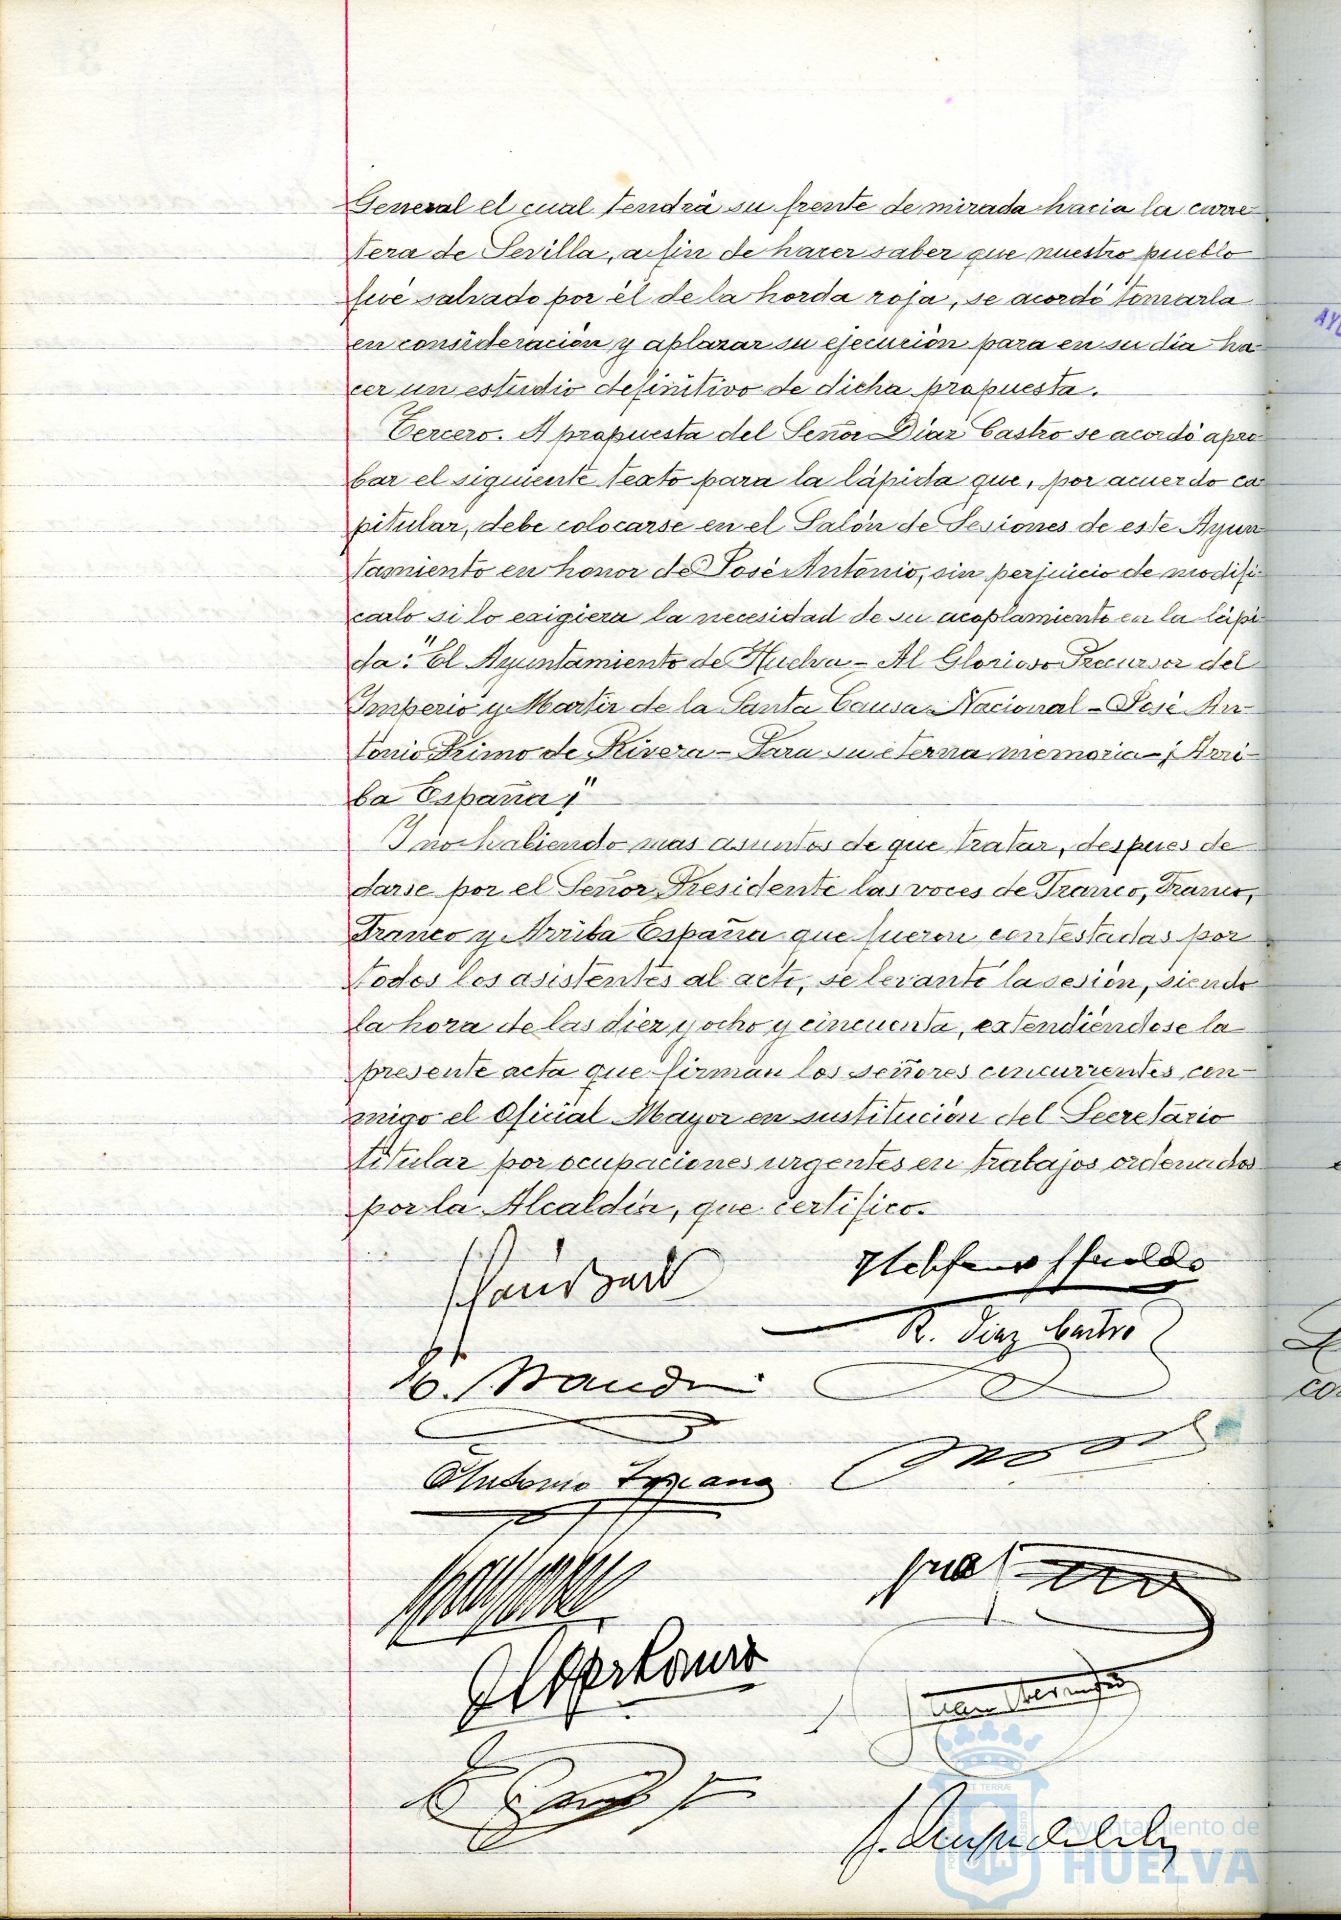 General el cual tendrá su frente de mirada hacia la carre-
tera de Sevilla, a fin de hacer saber que nuestro pueblo
fué salvado por él de la horda roja, se acordó tomarla
en consideración y aplazar su ejecución para en su día ha-
cer un estudio definitivo de dicha propuesta.
Tercero. A propuesta del Señor Díaz Castro se acordó apro-
bar el siguiente texto para la lápida que, por acuerdo ca-
pitular, debe colocarse en el Salón de Sesiones de este Ayun-
tamiento en honor de José Antonio, sin perjuicio de modifi-
carlo si lo exigiera la necesidad de su acoplamiento en la lápi-
da: "El Ayuntamiento de Huelva - Al Glorioso Precursor del
Imperio y Martir de la Santa Causa Nacional - José An-
tonio Primo de Rivera - Para su eterna memoria - ¡Arri-
ba España!"
Y no habiendo mas asuntos de que tratar, despues de
darse por el Señor Presidente las voces de Franco, Franco,
Franco y Arriba España que fueron contestadas por
todos los asistentes al acto, se levantó la sesión, siendo
la hora de las diez y ocho y cincuenta, extendiéndose la
presente acta que firman los señores concurrentes con-
migo el Oficial Mayor en sustitución del Secretario
titular por ocupaciones urgentes en trabajos ordenados
por la Alcaldía, que certifico.
R. Díaz Castro
Antonio Toscano
Ayuntamiento de
HUELVA